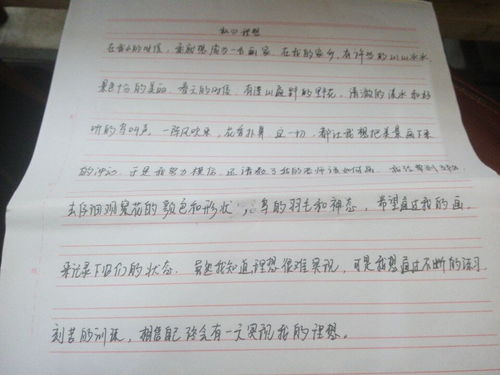 我的理想
在我小的时候，我就想成为一名画家。在我的家乡，有许多的山山水水，
景色十分的美丽。春天的时候，有漫山遍野的野花，清澈的溪水和好
听的鸟叫声。一阵风吹来，花香扑鼻。这一切，都让我想把美景画下来
的冲动。于是我努力模仿，还请教了我的老师该如何画。我经常到
去仔细观察花的颜色和形状，鸟的羽毛和神态，希望通过我的画
来记录下它们的状态。虽然我知道理想很难实现，可是我想通过不断的练习
刻苦的训练，相信自己终会有一天实现我的理想。